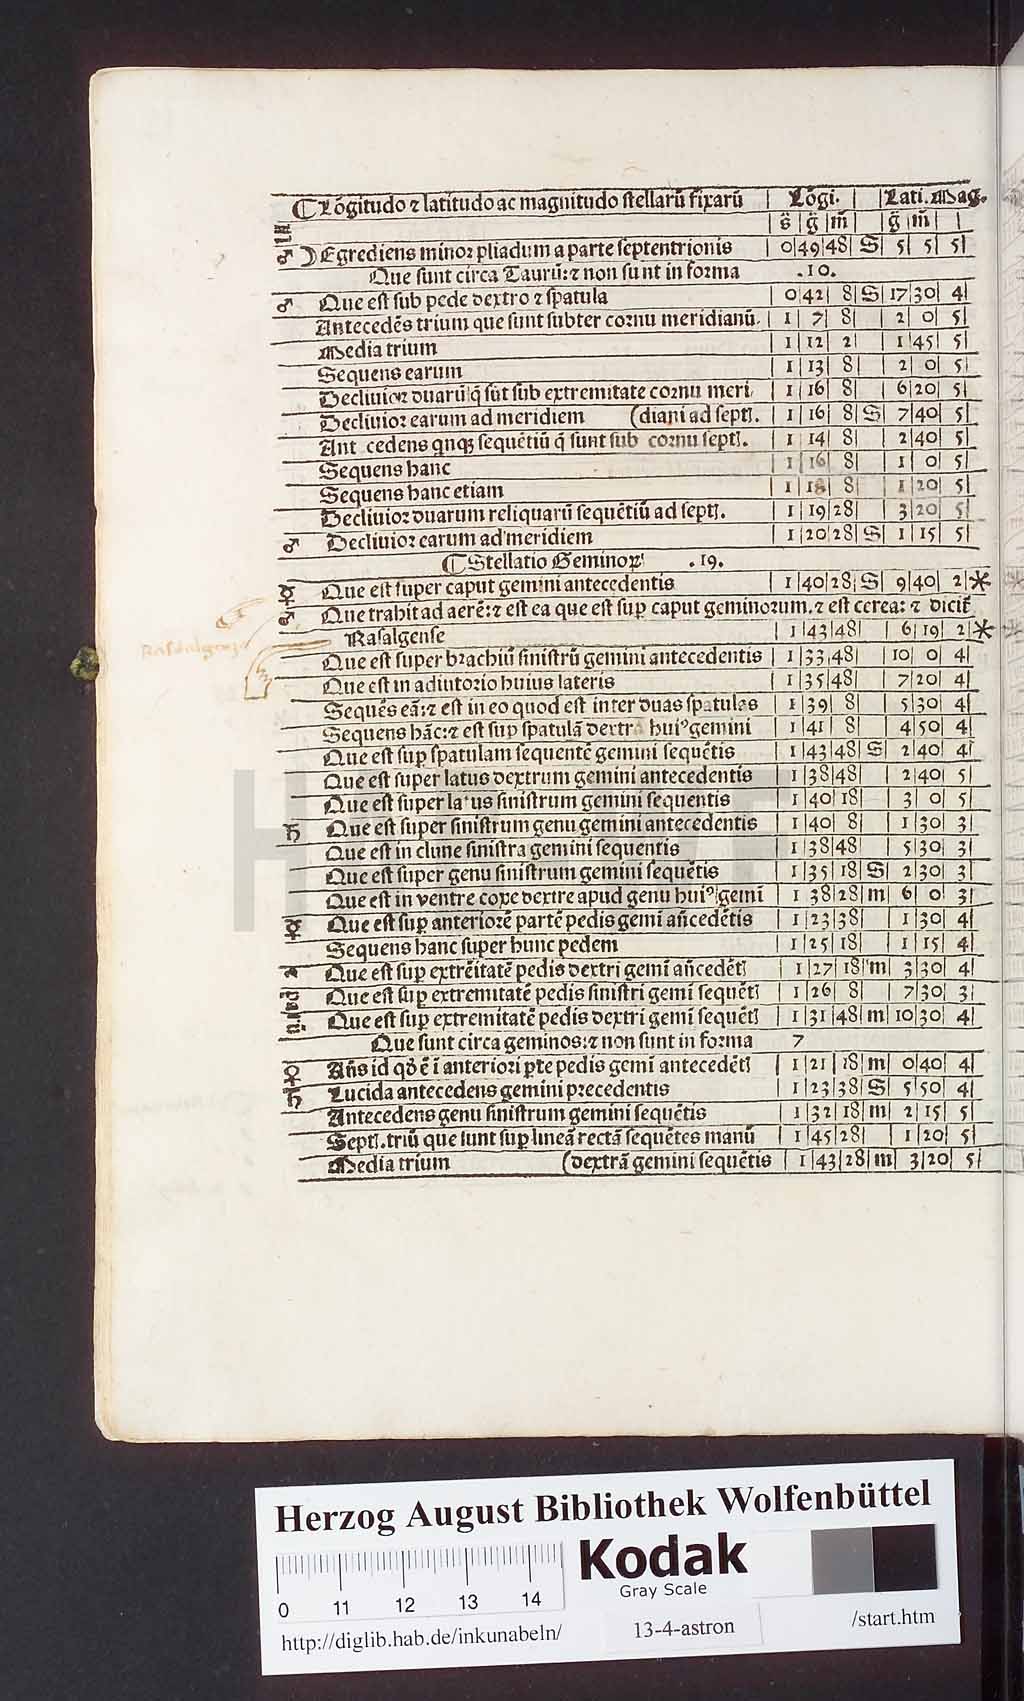 Lōgitudo ⁊ latitudo ac magnitudo stellarū fixarū | Lōgi. | Lati. Mag.
s̄ | ḡ | m̄ | ḡ | m̄
♂ ☽ Egrediens minor pliadum a parte septentrionis | 0 | 49 | 48 | S | 5 | 5 | 5
Que sunt circa Taurū: ⁊ non sunt in forma .10.
♂ Que est sub pede dextro ⁊ spatula | 0 | 42 | 8 | S | 17 | 30 | 4
Antecedēs trium que sunt subter cornu meridianū. | 1 | 7 | 8 | 2 | 0 | 5
Media trium | 1 | 12 | 2 | 1 | 45 | 5
Sequens earum | 1 | 13 | 8 | 2 | 0 | 5
Decliuior duarū q̄ sūt sub extremitate cornu meri | 1 | 16 | 8 | 6 | 20 | 5
Decliuior earum ad meridiem (diani ad septꝭ. | 1 | 16 | 8 | S | 7 | 40 | 5
Ant cedens qnqȝ sequētiū q̄ sunt sub cornu septꝭ. | 1 | 14 | 8 | 2 | 40 | 5
Sequens hanc | 1 | 16 | 8 | 1 | 0 | 5
Sequens hanc etiam | 1 | 18 | 8 | 1 | 20 | 5
Decliuior duarum reliquarū sequētiū ad septꝭ. | 1 | 19 | 28 | 3 | 20 | 5
♂ Decliuior earum ad meridiem | 1 | 20 | 28 | S | 1 | 15 | 5
Stellatio Geminoꝝ .19.
☿ Que est super caput gemini antecedentis | 1 | 40 | 28 | S | 9 | 40 | 2 | *
♂ Que trahit ad aerē: ⁊ est ea que est suꝑ caput geminorum. ⁊ est cerea: ⁊ dicit̄
Rasalgense | 1 | 43 | 48 | 6 | 19 | 2 | *
Que est super brachiū sinistrū gemini antecedentis | 1 | 33 | 48 | 10 | 0 | 4
Que est in adiutorio huius lateris | 1 | 35 | 48 | 7 | 20 | 4
Sequēs eā: ⁊ est in eo quod est inter duas spatulas | 1 | 39 | 8 | 5 | 30 | 4
Sequens hāc: ⁊ est suꝑ spatulā dextrā huiꝰ gemini | 1 | 41 | 8 | 4 | 50 | 4
Que est suꝑ spatulam sequentē gemini sequētis | 1 | 43 | 48 | S | 2 | 40 | 4
Que est super latus dextrum gemini antecedentis | 1 | 38 | 48 | 2 | 40 | 5
Que est super latus sinistrum gemini sequentis | 1 | 40 | 18 | 3 | 0 | 5
♄ Que est super sinistrum genu gemini antecedentis | 1 | 40 | 8 | 1 | 30 | 3
Que est in clune sinistra gemini sequentis | 1 | 38 | 48 | 5 | 30 | 3
Que est super genu sinistrum gemini sequētis | 1 | 35 | 18 | S | 2 | 30 | 3
Que est in ventre coxe dextre apud genu huiꝰ gemī | 1 | 38 | 28 | m | 6 | 0 | 3
☿ Que est suꝑ anteriorē partē pedis gemi an̄cedētis | 1 | 23 | 38 | 1 | 30 | 4
Sequens hanc super hunc pedem | 1 | 25 | 18 | 1 | 15 | 4
Que est suꝑ extrēitatē pedis dextri gemī an̄cedētꝭ | 1 | 27 | 18 | m | 3 | 30 | 4
Que est suꝑ extremitatē pedis sinistri gemī sequētꝭ | 1 | 26 | 8 | 7 | 30 | 3
Que est suꝑ extremitatē pedis dextri gemī sequētꝭ | 1 | 31 | 48 | m | 10 | 30 | 4
Que sunt circa geminos: ⁊ non sunt in forma 7
♀ An̄s id qd̄ ē ī anteriori ꝑte pedis gemī antecedētꝭ | 1 | 21 | 18 | m | 0 | 40 | 4
♄ Lucida antecedens gemini precedentis | 1 | 23 | 38 | S | 5 | 50 | 4
Antecedens genu sinistrum gemini sequētis | 1 | 32 | 18 | m | 2 | 15 | 5
Septꝭ. triū que sunt suꝑ lineā rectā sequētes manū | 1 | 45 | 28 | 1 | 20 | 5
Media trium (dextrā gemini sequētis | 1 | 43 | 28 | m | 3 | 20 | 5
Herzog August Bibliothek Wolfenbüttel
Kodak
Gray Scale
0 11 12 13 14
http://diglib.hab.de/inkunabeln/ 13-4-astron /start.htm